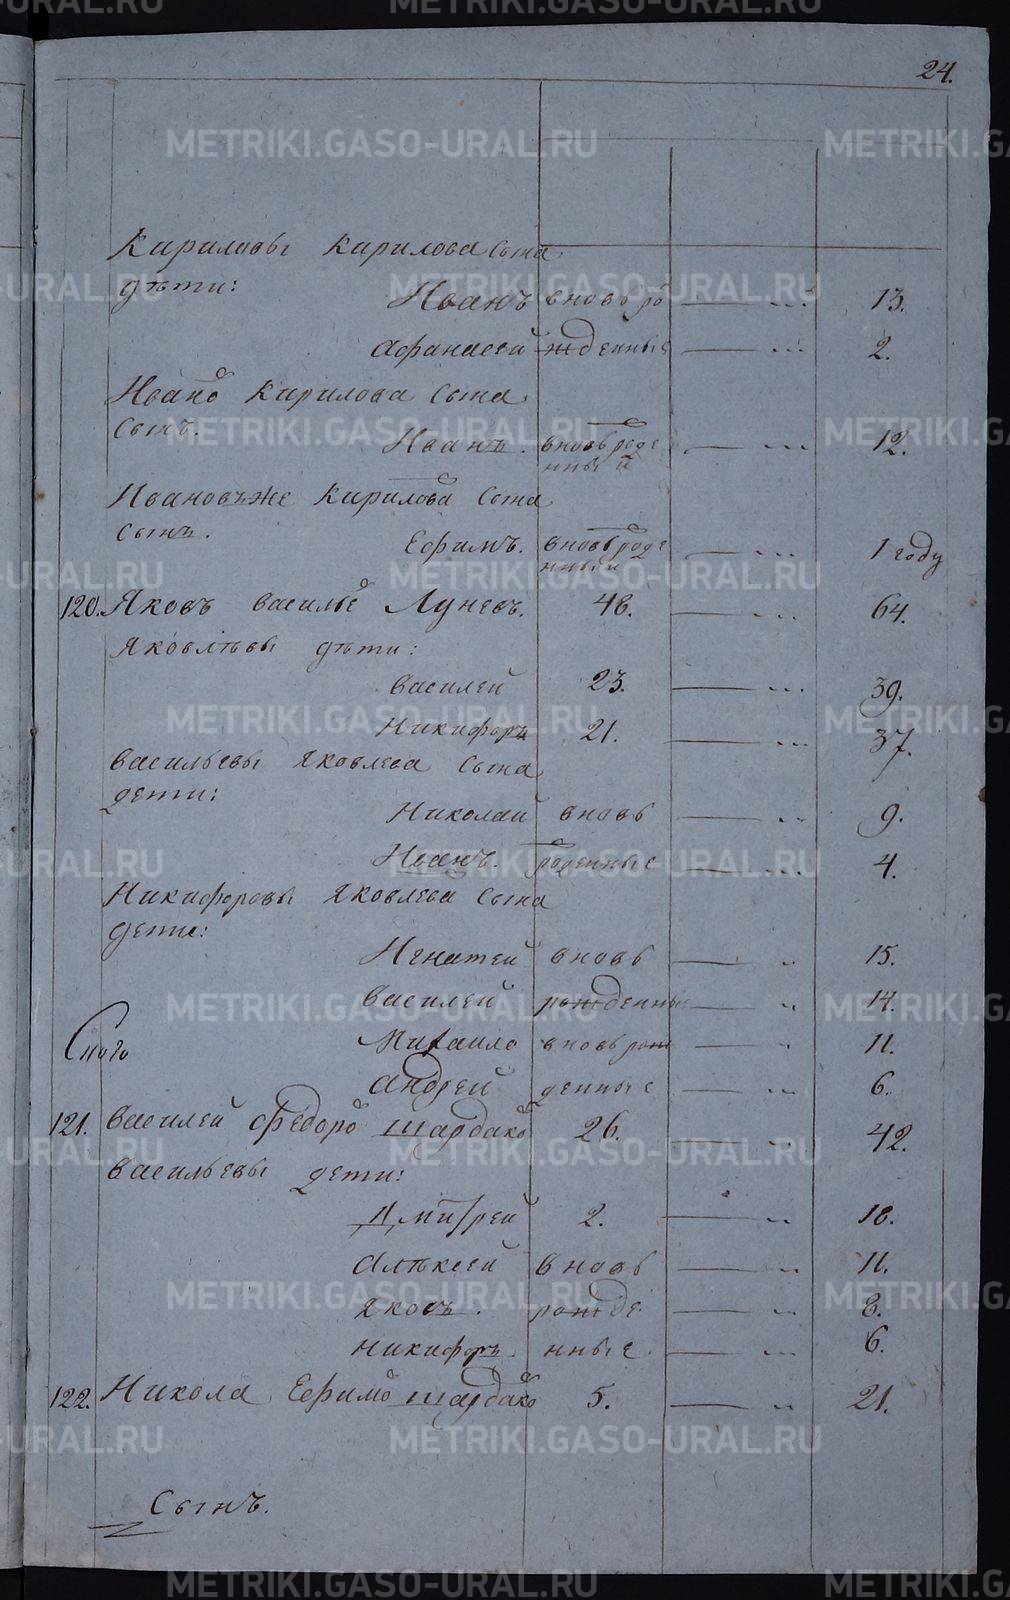 24.
Кириловы Кирилова сына
дѣти:
Иванъ вновь ро — ... 13.
Афанасей жденные — ... 2.
Ивано Кирилова сына
сынъ.
Иванъ. вновь роде — ... 12.
нный
Ивановъ же Кирилова сына
сынъ.
Ефимъ. вновь роде — ... 1 году
нный
120. Яковъ Василье Луневъ. 48. — ... 64.
Яковлевы дѣти:
Василей 23. — ... 39.
Никифоръ 21. — ... 37.
Васильевы Яковлева сына
дети:
Николай вновь — ... 9.
Иванъ. роденные — ... 4.
Никифоровы Яковлева сына
дети:
Игнатей вновь — .. 15.
Василей рожденные — .. 14.
Михаило вновь рож — .. 11.
Андрей денные — .. 6.
121. Василей Федоро Шардако 26. — .. 42.
Васильевы дети:
Дмитрей 2. — .. 18.
Алѣксей вновь — .. 11.
Яковъ. рожде — .. 8.
Никифоръ. нные. — ... 6.
122. Никола Ефимо Шардако 5. — .. 21.
Сынъ.
METRIKI.GASO-URAL.RU